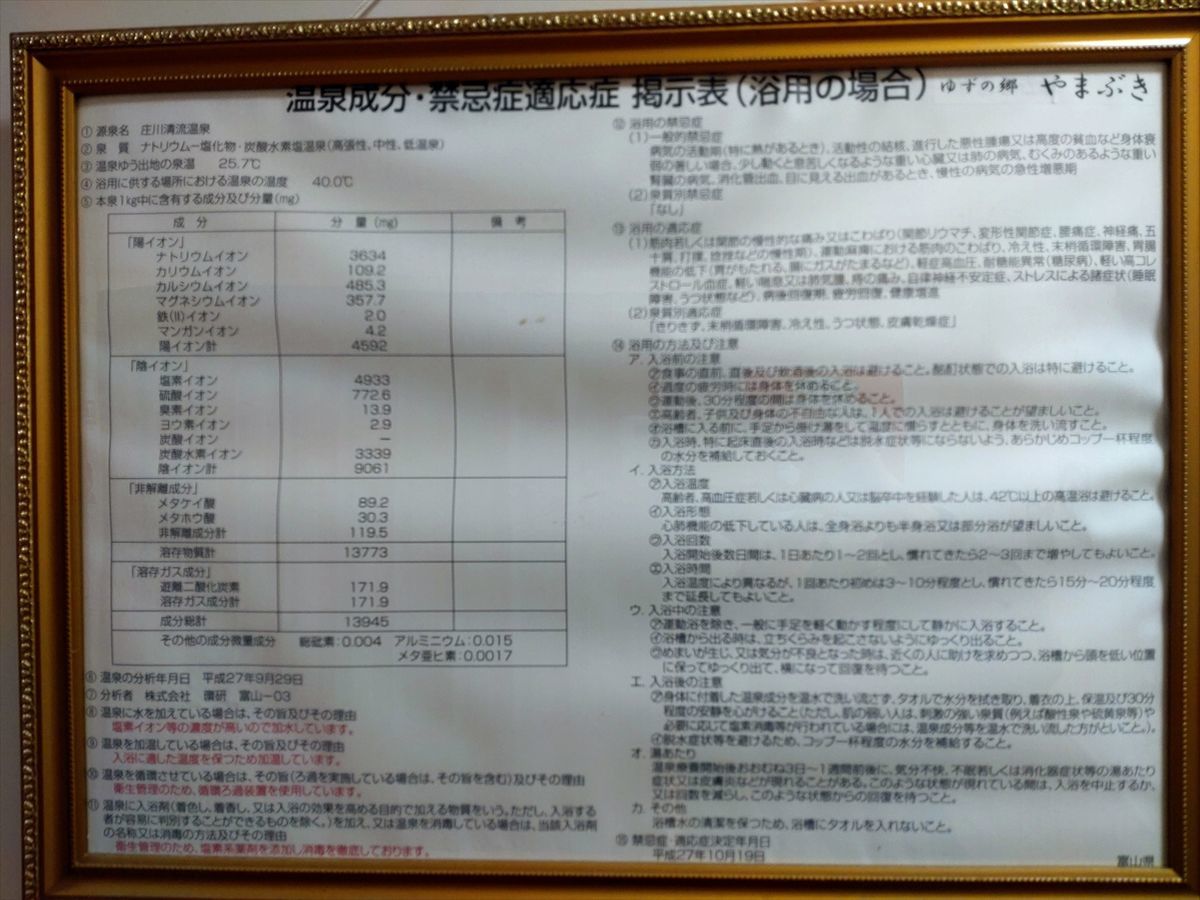 温泉成分・禁忌症適応症 掲示表(浴用の場合) ゆずの郷 やまぶき
① 源泉名 庄川清流温泉
② 泉 質 ナトリウム-塩化物・炭酸水素塩温泉(高張性、中性、低温泉)
③ 温泉ゆう出地の泉温 25.7℃
④ 浴用に供する場所における温泉の温度 40.0℃
⑤ 本泉1kg中に含有する成分及び分量(mg)
成 分 分 量 (mg) 備 考
「陽イオン」
ナトリウムイオン 3634
カリウムイオン 109.2
カルシウムイオン 485.3
マグネシウムイオン 357.7
鉄(II)イオン 2.0
マンガンイオン 4.2
陽イオン計 4592
「陰イオン」
塩素イオン 4933
硫酸イオン 772.6
臭素イオン 13.9
ヨウ素イオン 2.9
炭酸イオン ―
炭酸水素イオン 3339
陰イオン計 9061
「非解離成分」
メタケイ酸 89.2
メタホウ酸 30.3
非解離成分計 119.5
溶存物質計 13773
「溶存ガス成分」
遊離二酸化炭素 171.9
溶存ガス成分計 171.9
成分総計 13945
その他の成分微量成分 総砒素:0.004 アルミニウム:0.015
メタ亜ヒ素:0.0017
⑥ 温泉の分析年月日 平成27年9月29日
⑦ 分析者 株式会社 環研 富山-03
⑧ 温泉に水を加えている場合は、その旨及びその理由
塩素イオン等の濃度が高いので加水しています。
⑨ 温泉を加温している場合は、その旨及びその理由
入浴に適した温度を保つため加温しています。
⑩ 温泉を循環させている場合は、その旨(ろ過を実施している場合は、その旨を含む)及びその理由
衛生管理のため、循環ろ過装置を使用しています。
⑪ 温泉に入浴剤(着色し、着香し、又は入浴の効果を高める目的で加える物質をいう。ただし、入浴する
者が容易に判別することができるものを除く。)を加え、又は温泉を消毒している場合は、当該入浴剤
の名称又は消毒の方法及びその理由
衛生管理のため、塩素系薬剤を添加し消毒を徹底しております。
⑫ 浴用の禁忌症
(1)一般的禁忌症
病気の活動期(特に熱があるとき)、活動性の結核、進行した悪性腫瘍又は高度の貧血など身体衰
弱の著しい場合、少し動くと息苦しくなるような重い心臓又は肺の病気、むくみのあるような重い
腎臓の病気、消化管出血、目に見える出血があるとき、慢性の病気の急性増悪期
(2)泉質別禁忌症
「なし」
⑬ 浴用の適応症
(1)筋肉若しくは関節の慢性的な痛み又はこわばり(関節リウマチ、変形性関節症、腰痛症、神経痛、五
十肩、打撲、捻挫などの慢性期)、運動麻痺における筋肉のこわばり、冷え性、末梢循環障害、胃腸
機能の低下(胃がもたれる、腸にガスがたまるなど)、軽症高血圧、耐糖能異常(糖尿病)、軽い高コレ
ストロール血症、軽い喘息又は肺気腫、痔の痛み、自律神経不安定症、ストレスによる諸症状(睡眠
障害、うつ状態など)、病後回復期、疲労回復、健康増進
(2)泉質別適応症
「きりきず、末梢循環障害、冷え性、うつ状態、皮膚乾燥症」
⑭ 浴用の方法及び注意
ア. 入浴前の注意
㋐食事の直前、直後及び飲酒後の入浴は避けること。酩酊状態での入浴は特に避けること。
㋑過度の疲労時には身体を休めること。
㋒運動後、30分程度の間は身体を休めること。
㋓高齢者、子供及び身体の不自由な人は、1人での入浴は避けることが望ましいこと。
㋔浴槽に入る前に、手足から掛け湯をして温度に慣らすとともに、身体を洗い流すこと。
㋕入浴時、特に起床直後の入浴時などは脱水症状等にならないよう、あらかじめコップ一杯程度
の水分を補給しておくこと。
イ. 入浴方法
㋐入浴温度
高齢者、高血圧症若しくは心臓病の人又は脳卒中を経験した人は、42℃以上の高温浴は避けること。
㋑入浴形態
心肺機能の低下している人は、全身浴よりも半身浴又は部分浴が望ましいこと。
㋒入浴回数
入浴開始後数日間は、1日あたり1～2回とし、慣れてきたら2～3回まで増やしてもよいこと。
㋓入浴時間
入浴温度により異なるが、1回あたり初めは3～10分程度とし、慣れてきたら15分～20分程度
まで延長してもよいこと。
ウ. 入浴中の注意
㋐運動浴を除き、一般に手足を軽く動かす程度にして静かに入浴すること。
㋑浴槽から出る時は、立ちくらみを起こさないようにゆっくり出ること。
㋒めまいが生じ、又は気分が不良となった時は、近くの人に助けを求めつつ、浴槽から頭を低い位置
に保ってゆっくり出て、横になって回復を待つこと。
エ. 入浴後の注意
㋐身体に付着した温泉成分を温水で洗い流さず、タオルで水分を拭き取り、着衣の上、保温及び30分
程度の安静を心がけること(ただし、肌の弱い人は、刺激の強い泉質(例えば酸性泉や硫黄泉等)や
必要に応じて塩素消毒等が行われている場合には、温泉成分等を温水で洗い流した方がよいこと。)。
㋑脱水症状等を避けるため、コップ一杯程度の水分を補給すること。
オ. 湯あたり
温泉療養開始後おおむね3日～1週間前後に、気分不快、不眠若しくは消化器症状等の湯あたり
症状又は皮膚炎などが現れることがある。このような状態が現れている間は、入浴を中止するか、
又は回数を減らし、このような状態からの回復を待つこと。
カ. その他
浴槽水の清潔を保つため、浴槽にタオルを入れないこと。
⑮ 禁忌症・適応症決定年月日
平成27年10月19日
富山県